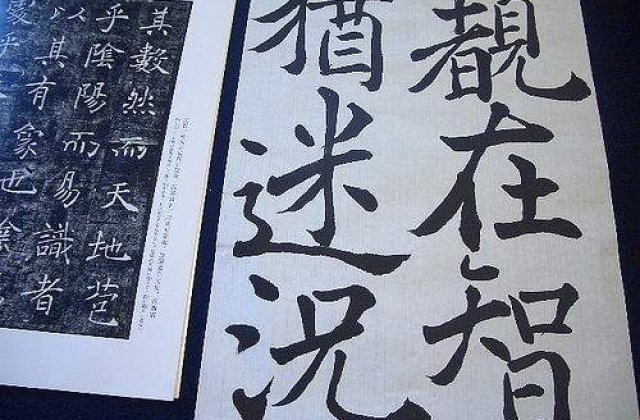 覩在智
猶迷況
其數然而天地苞
乎陰陽而易識者
以其有象也陰
處乎